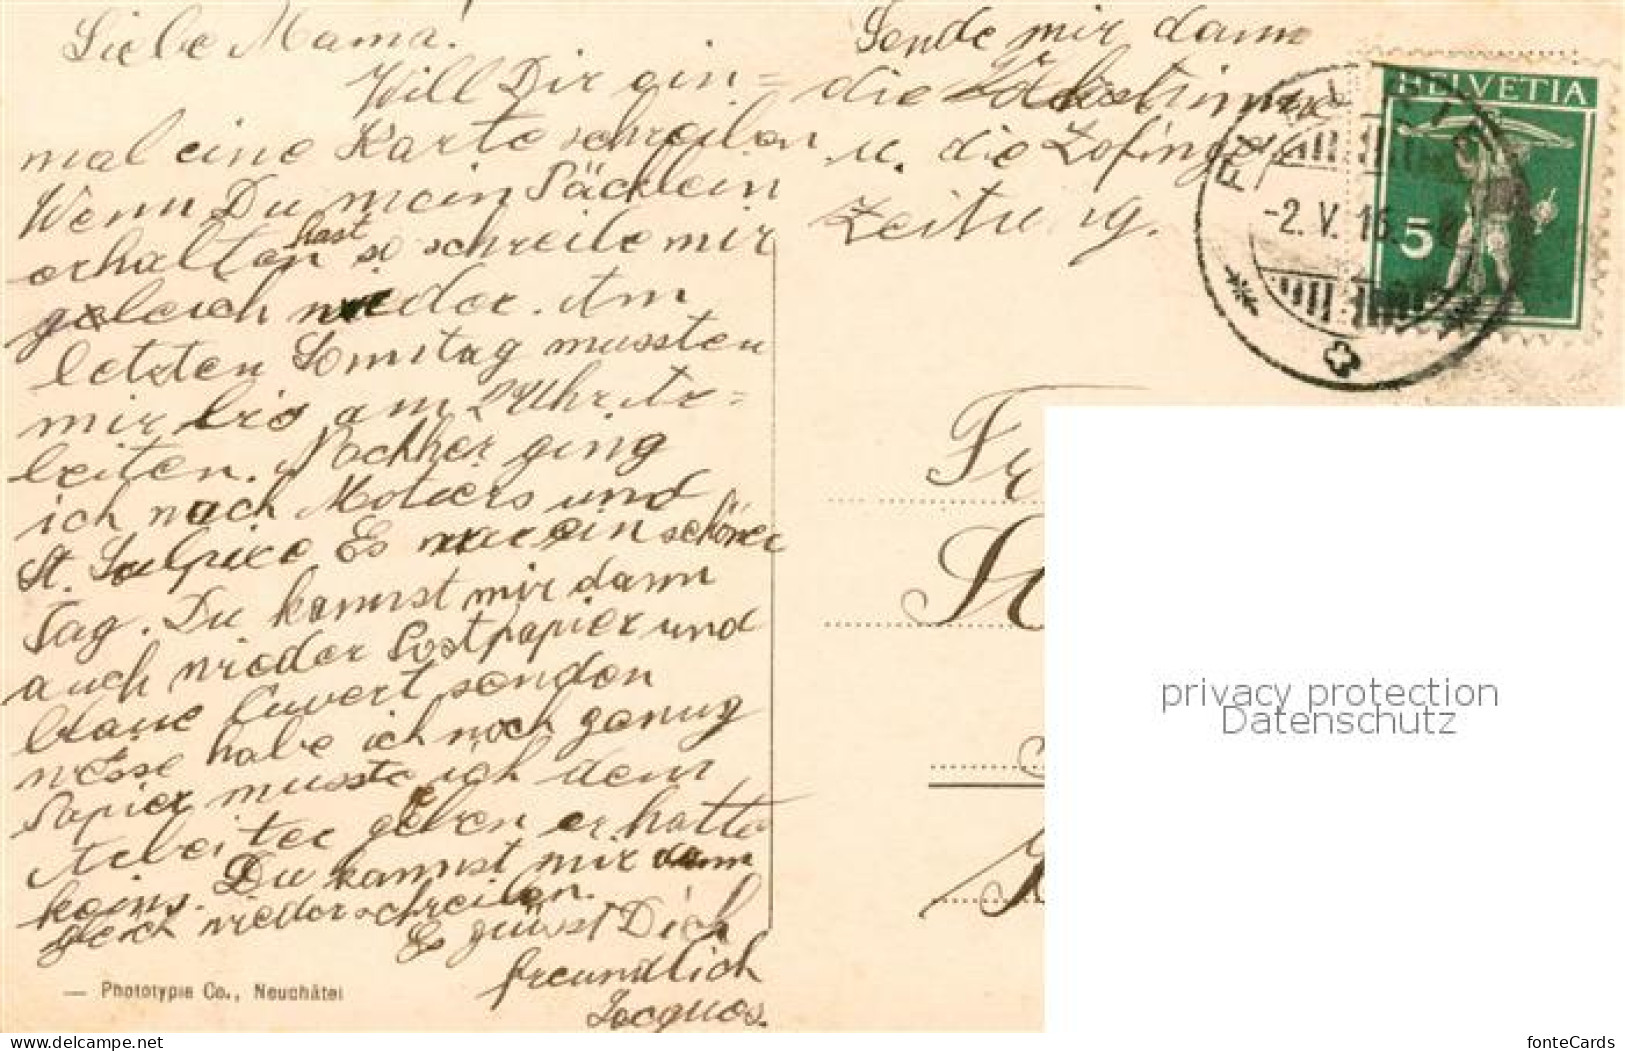 Liebe Mama!
Will Dir ein=
mal eine Karte schreiben
Wenn Du mein Päcklein
erhalten hast so schreibe mir
gleich wieder. Am
letzten Sonntag mussten
wir bis am 2 Uhr Ar=
beiten. Nachher ging
ich nach Motiers und
St. Sulpice Es war ein schöner
Tag. Du kannst mir dann
auch wieder Postpapier und
blaue Cuvert senden
weisse habe ich noch genug
Papier musste ich dem
Arbeiter geben er hatte
keins. Du kannst mir dann
gleich wieder schreiben.
Es grüsst Dich
freundlich
Jacques.
Sende mir dann
die
u. die Zofinger
Zeitung.
HELVETIA
5
-2.V.16.
Fr
privacy protection
Datenschutz
— Phototypie Co., Neuchâtel
www.delcampe.net
fonteCards